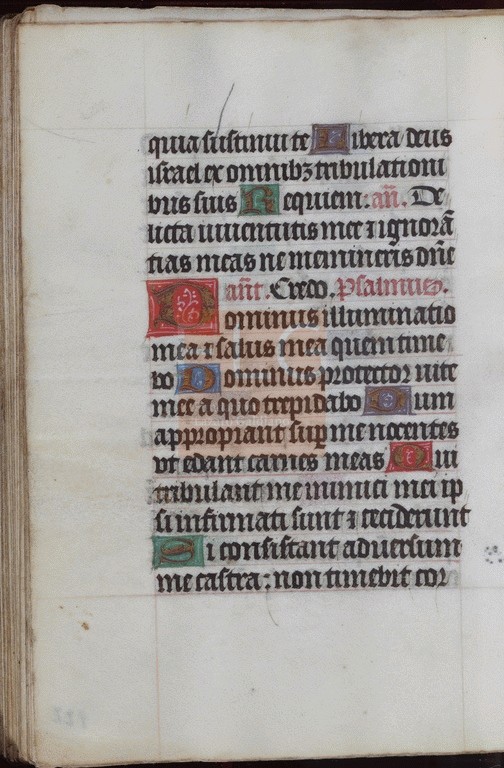 quia sustinui te Libera deus
israel ex omnibꝫ tribulationi
bus suis Requiem: añ. De⸗
licta iuuentutis mee ⁊ ignorã
tias meas ne memineris dñe
añt. Credo. Psalmus.
Dominus illuminatio
mea ⁊ salus mea quem time
bo Dominus protector uite
mee a quo trepidabo Dum
appropiant suꝑ me nocentes
vt edant carnes meas Qui
tribulant me inimici mei ip
si infirmati sunt ⁊ ceciderunt
Si consistant aduersum
me castra: non timebit cor